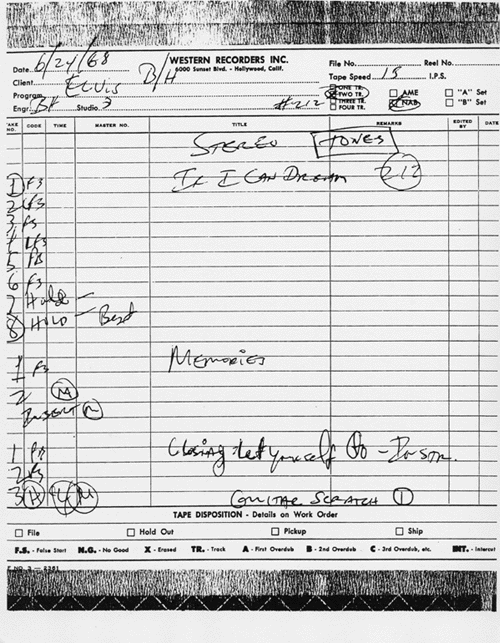 WESTERN RECORDERS INC.
6000 Sunset Blvd. - Hollywood, Calif.
Date 6/24/68
Client ELVIS B/H
Program
Engr. BH Studio 3
#212
File No. Reel No.
Tape Speed 15 I.P.S.
ONE TR.
TWO TR.
THREE TR.
FOUR TR.
AME
NAB
"A" Set
"B" Set
TAKE NO. CODE TIME MASTER NO. TITLE REMARKS EDITED BY DATE
STEREO TONES
1 FS IF I CAN DREAM 212
2 LFS
3 FS
4 LFS
5 FB
6 FS
7 Hold -
8 HOLD - Best
1 FS MEMORIES
2 M
INSERT M
1 FB Closing: Let yourself Go - INSTR.
2 FS
3 H M GUITAR SCRATCH 1
TAPE DISPOSITION - Details on Work Order
File Hold Out Pickup Ship
F.S. - False Start N.G. - No Good X - Erased TR. - Track A - First Overdub B - 2nd Overdub C - 3rd Overdub, etc. INT. - Intercut